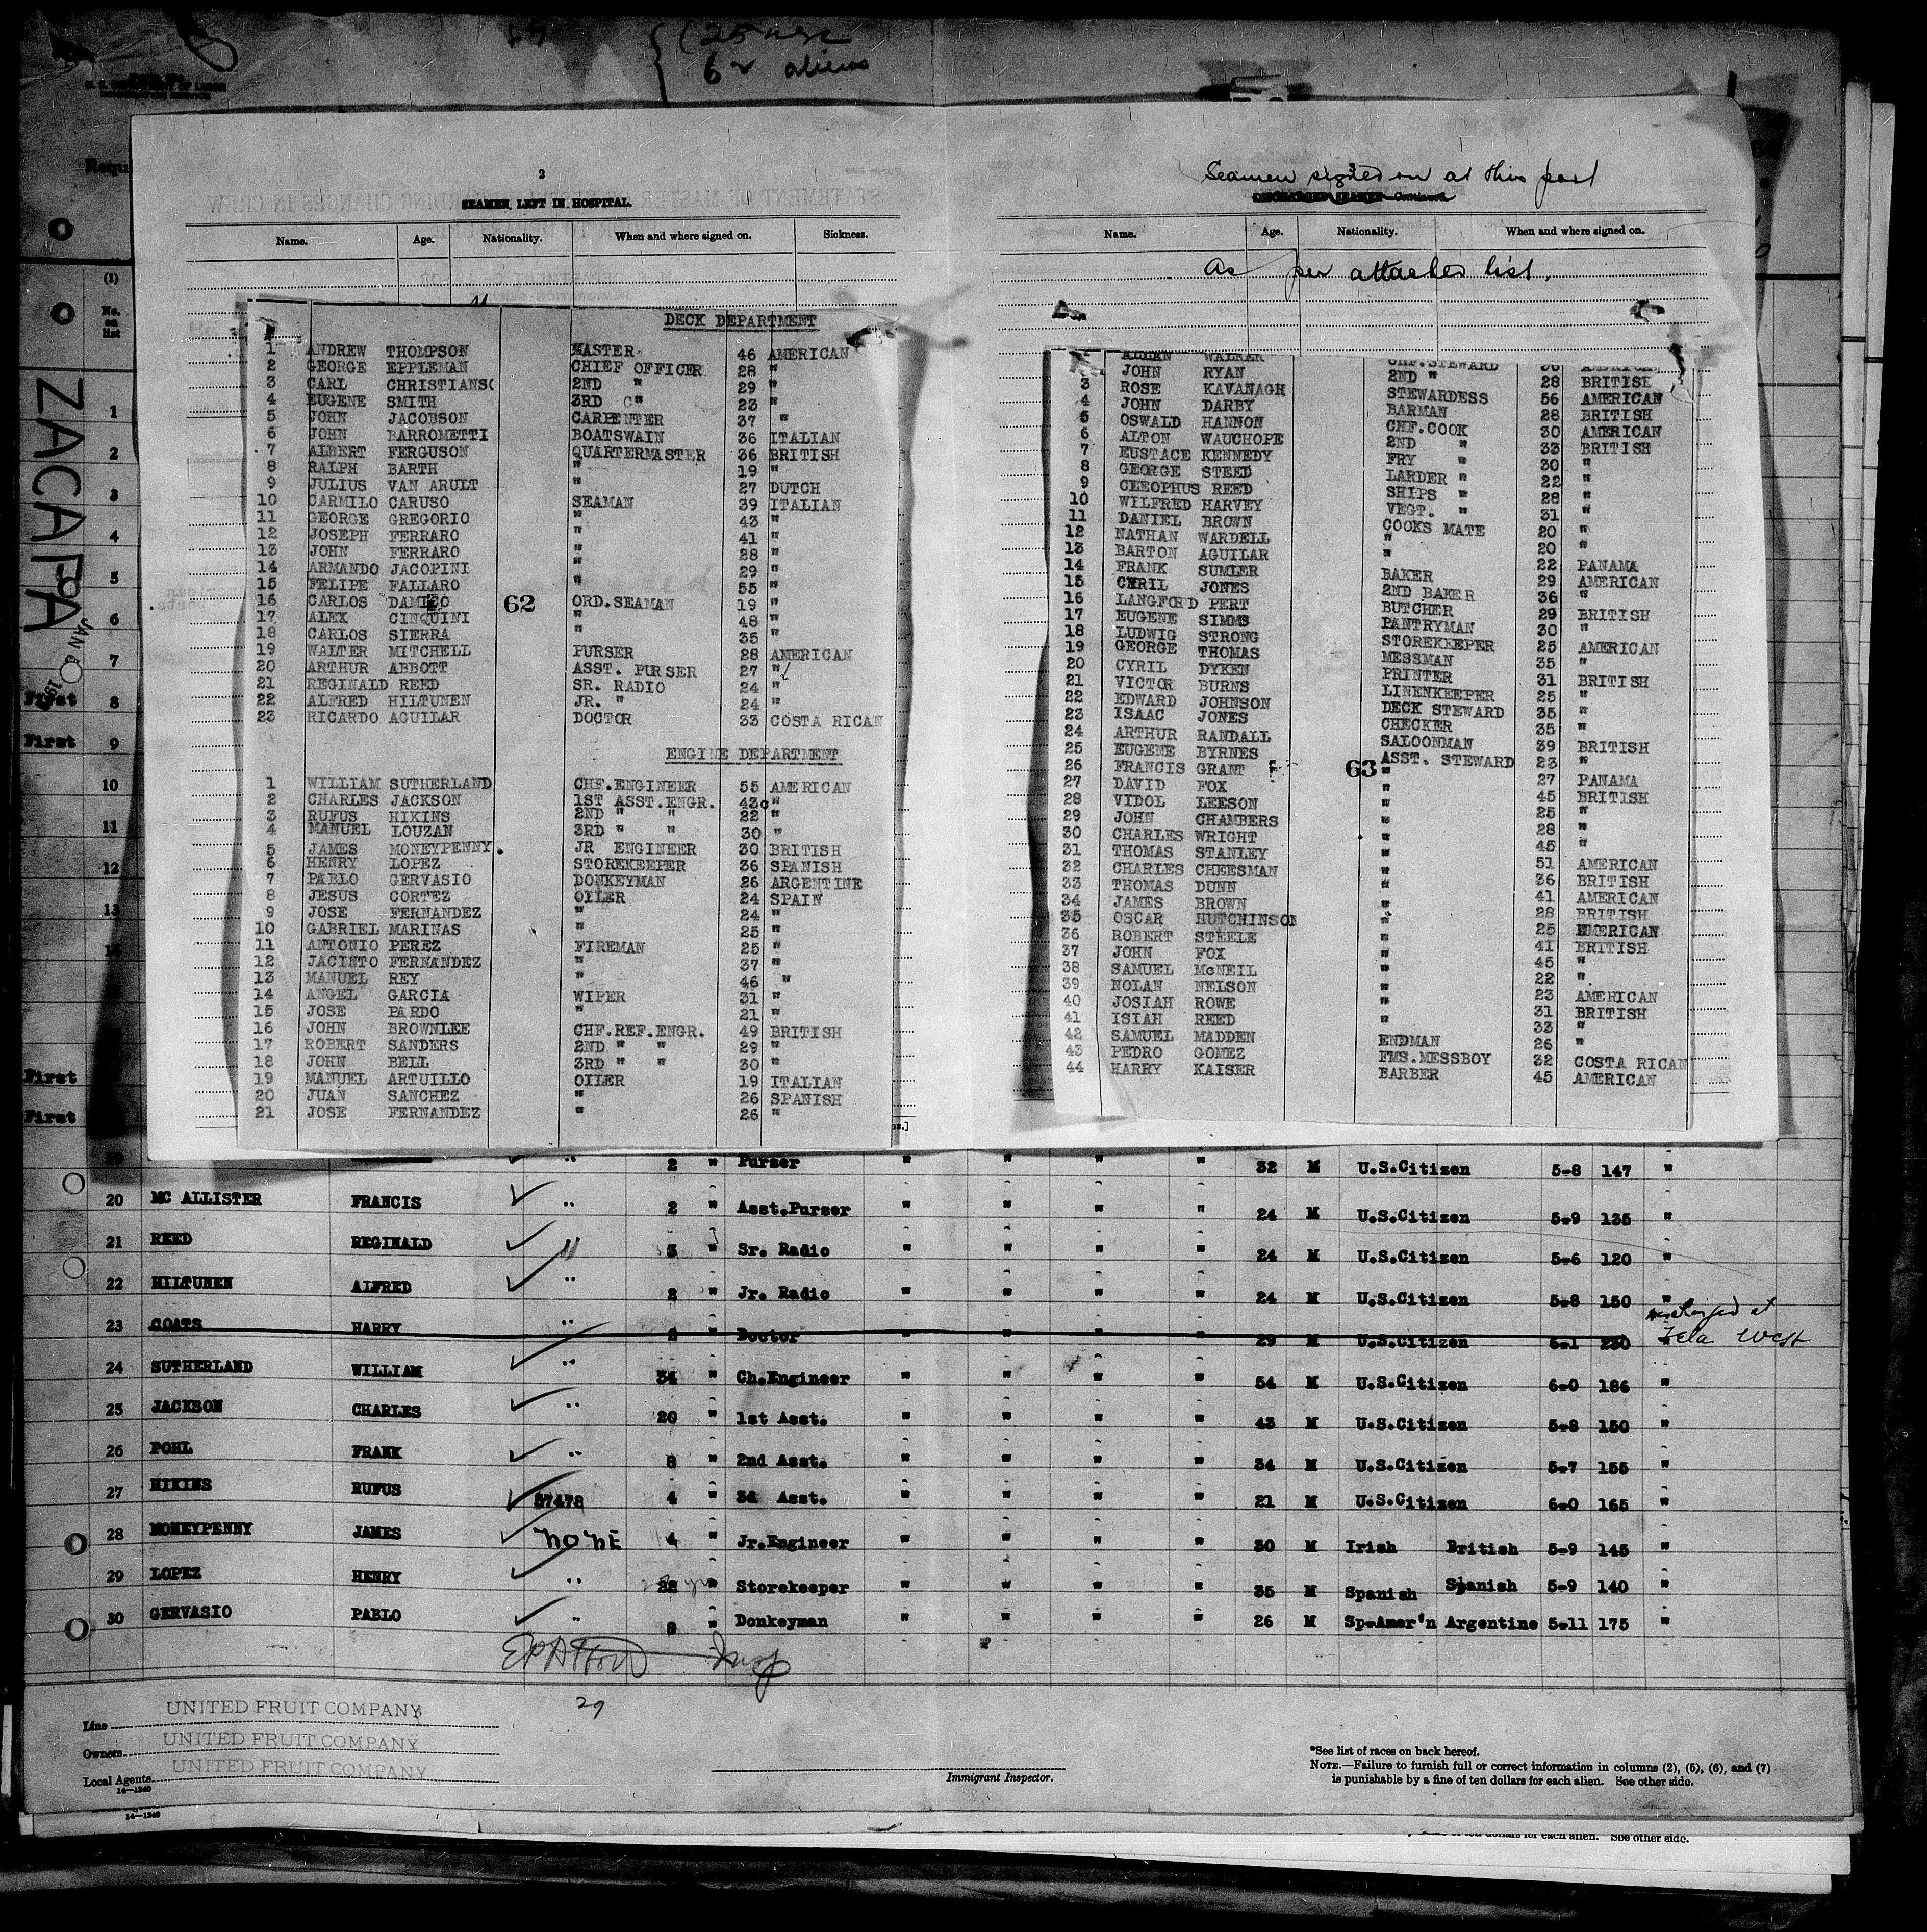 (25 usc
62 aliens
U. S. DEPARTMENT OF LABOR
2
SEAMEN LEFT IN HOSPITAL.
Name. Age. Nationality. When and where signed on. Sickness.
DECK DEPARTMENT
1 ANDREW THOMPSON MASTER 46 AMERICAN
2 GEORGE EPPLEMAN CHIEF OFFICER 28 "
3 CARL CHRISTIANS( 2ND " 29 "
4 EUGENE SMITH 3RD " 23 "
5 JOHN JACOBSON CARPENTER 37 "
6 JOHN BARROMETTI BOATSWAIN 36 ITALIAN
7 ALBERT FERGUSON QUARTERMASTER 36 BRITISH
8 RALPH BARTH " 19 "
9 JULIUS VAN ARULT " 27 DUTCH
10 CARMILO CARUSO SEAMAN 39 ITALIAN
11 GEORGE GREGORIO " 43 "
12 JOSEPH FERRARO " 41 "
13 JOHN FERRARO " 28 "
14 ARMANDO JACOPINI " 29 "
15 FELIPE FALLARO " 55 "
16 CARLOS 62 ORD.SEAMAN 19 "
17 ALEX CINQUINI " 48 "
18 CARLOS SIERRA " 35 "
19 WALTER MITCHELL PURSER 28 AMERICAN
20 ARTHUR ABBOTT ASST. PURSER 27 "
21 REGINALD REED SR. RADIO 24 "
22 ALFRED HILTUNEN JR. " 24 "
23 RICARDO AGUILAR DOCTOR 33 COSTA RICAN
ENGINE DEPARTMENT
1 WILLIAM SUTHERLAND CHF.ENGINEER 55 AMERICAN
2 CHARLES JACKSON 1ST ASST.ENGR. 43 "
3 RUFUS HIKINS 2ND " " 22 "
4 MANUEL LOUZAN 3RD " " 30 "
5 JAMES MONEYPENNY. JR ENGINEER 30 BRITISH
6 HENRY LOPEZ STOREKEEPER 36 SPANISH
7 PABLO GERVASIO DONKEYMAN 26 ARGENTINE
8 JESUS CORTEZ OILER 24 SPAIN
9 JOSE FERNANDEZ " 24 "
10 GABRIEL MARINAS " 25 "
11 ANTONIO PEREZ FIREMAN 25 "
12 JACINTO FERNANDEZ " 37 "
13 MANUEL REY " 46 "
14 ANGEL GARCIA WIPER 31 "
15 JOSE PARDO " 21 "
16 JOHN BROWNLEE CHF.REF.ENGR. 49 BRITISH
17 ROBERT SANDERS 2ND " " 29 "
18 JOHN BELL 3RD " " 30 "
19 MANUEL ARTUILLO OILER 19 ITALIAN
20 JUAN SANCHEZ " 26 SPANISH
21 JOSE FERNANDEZ " 26 "
Seamen signed on at this port
3
DISCHARGED SEAMEN—Continued.
Name. Age. Nationality. When and where signed on.
As per attached list.
ALLAN WALKER CHF.STEWARD
JOHN RYAN 2ND " 28 BRITISH
3 ROSE KAVANAGH STEWARDESS 56 AMERICAN
4 JOHN DARBY BARMAN 28 BRITISH
5 OSWALD HANNON CHF.COOK 30 AMERICAN
6 ALTON WAUCHOPE 2ND " 33 BRITISH
7 EUSTACE KENNEDY FRY " 30 "
8 GEORGE STEED LARDER " 22 "
9 CLEOPHUS REED SHIPS " 28 "
10 WILFRED HARVEY VEGT. " 31 "
11 DANIEL BROWN COOKS MATE 20 "
12 NATHAN WARDELL " 20 "
13 BARTON AGUILAR " 22 PANAMA
14 FRANK SUMLER BAKER 29 AMERICAN
15 CYRIL JONES 2ND BAKER 36 "
16 LANGFORD PERT BUTCHER 29 BRITISH
17 EUGENE SIMMS PANTRYMAN 30 "
18 LUDWIG STRONG STOREKEEPER 25 AMERICAN
19 GEORGE THOMAS MESSMAN 35 "
20 CYRIL DYKEN PRINTER 31 BRITISH
21 VICTOR BURNS LINENKEEPER 25 "
22 EDWARD JOHNSON DECK STEWARD 35 "
23 ISAAC JONES CHECKER 35 "
24 ARTHUR RANDALL SALOONMAN 39 BRITISH
25 EUGENE BYRNES ASST. STEWARD 23 "
26 FRANCIS GRANT 63 " 27 PANAMA
27 DAVID FOX " 45 BRITISH
28 VIDOL LEESON " 25 "
29 JOHN CHAMBERS " 28 "
30 CHARLES WRIGHT " 45 "
31 THOMAS STANLEY " 51 AMERICAN
32 CHARLES CHEESMAN " 36 BRITISH
33 THOMAS DUNN " 41 AMERICAN
34 JAMES BROWN " 28 BRITISH
35 OSCAR HUTCHINSON " 25 AMERICAN
36 ROBERT STEELE " 41 BRITISH
37 JOHN FOX " 45 "
38 SAMUEL McNEIL " 22 "
39 NOLAN NELSON " 23 AMERICAN
40 JOSIAH ROWE " 31 BRITISH
41 ISIAH REED " 33 "
42 SAMUEL MADDEN ENDMAN 26 "
43 PEDRO GOMEZ FMS.MESSBOY 32 COSTA RICAN
44 HARRY KAISER BARBER 45 AMERICAN
(1)
No. on list
ZACAPA
1
2
3
4
5
6
7
First 8
First 9
10
11
12
13
First
First
2 " Purser " " " " 32 M U.S.Citizen 5-8 147 "
20 MC ALLISTER FRANCIS 2 " Asst.Purser " " " " 24 M U.S.Citizen 5-9 135 "
21 REED REGINALD 3 " Sr. Radio " " " " 24 M U.S.Citizen 5-6 120 "
22 HILTUNEN ALFRED 2 " Jr. Radio " " " " 24 M U.S.Citizen 5-8 150 "
23 COATS HARRY Doctor 29 M U.S.Citizen 6-1 230 West
24 SUTHERLAND WILLIAM 34 " Ch.Engineer " " " " 54 M U.S.Citizen 6-0 186 "
25 JACKSON CHARLES 20 " 1st Asst. " " " " 43 M U.S.Citizen 5-8 150 "
26 POHL FRANK 8 " 2nd Asst. " " " " 34 M U.S.Citizen 5-7 155 "
27 HIKINS RUFUS 57478 4 " 3d Asst. " " " " 21 M U.S.Citizen 6-0 165 "
28 MONEYPENNY JAMES NONE 4 " Jr.Engineer " " " " 30 M Irish British 5-9 145 "
29 LOPEZ HENRY 22 " Storekeeper " " " " 35 M Spanish Spanish 5-9 140 "
30 GERVASIO PABLO " Donkeyman " " " " 26 M Sp-Amer'n Argentine 5-11 175 "
29
Line UNITED FRUIT COMPANY
Owners UNITED FRUIT COMPANY
Local Agents UNITED FRUIT COMPANY
14—1240
14—1240
Immigrant Inspector.
*See list of races on back hereof.
NOTE.—Failure to furnish full or correct information in columns (2), (5), (6), and (7)
is punishable by a fine of ten dollars for each alien. See other side.
for each alien. See other side.